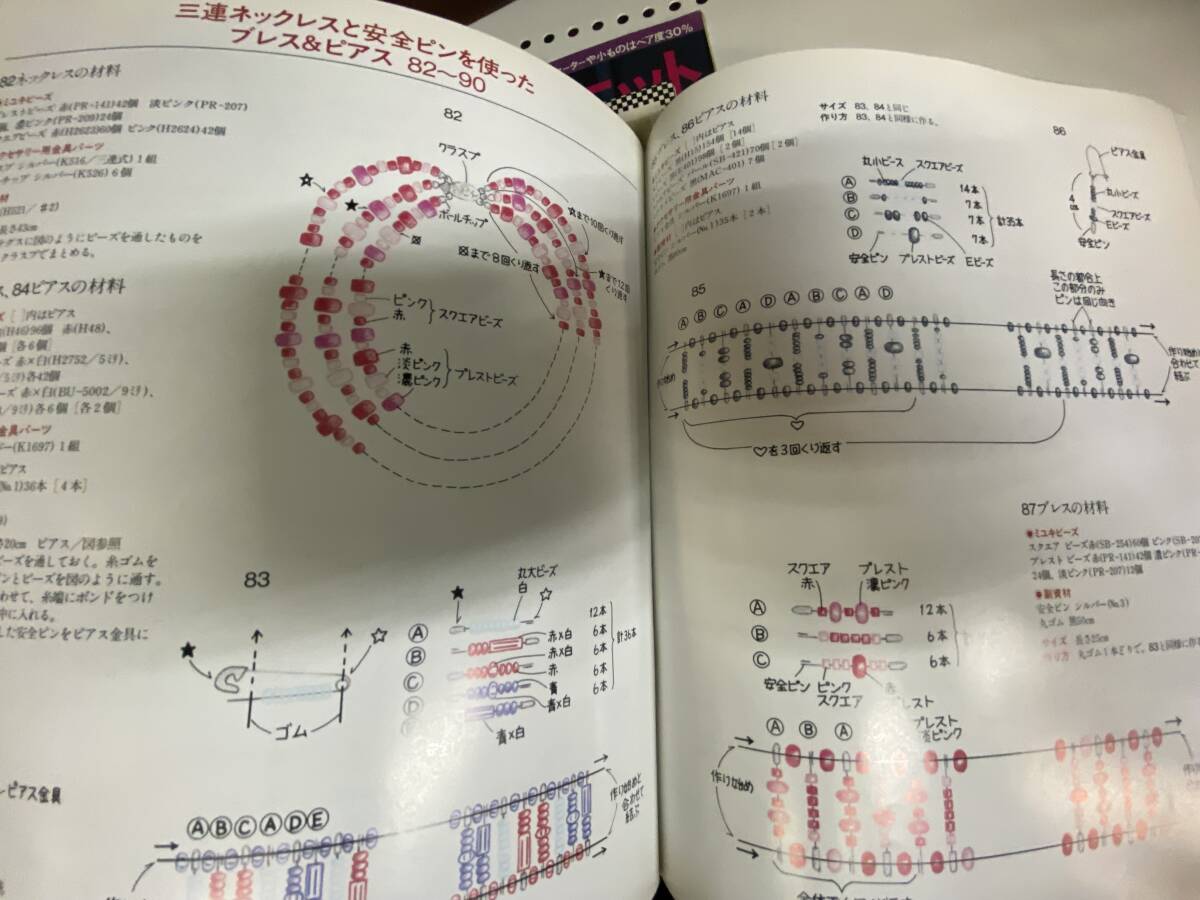 三連ネックレスと安全ピンを使った
ブレス&ピアス 82〜90
82ネックレスの材料
ミユキビーズ
プレストビーズ 赤(PR-141)42個 淡ピンク(PR-207)
個、濃ピンク(PR-209)24個
クエアビーズ 赤(H2623)360個 ピンク(H2624)42個
クセサリー用金具パーツ
シルバー(K516/三連式)1組
チップ シルバー(K526)6個
長さ43cm
テグスに図のようにビーズを通したものを
クラスプでまとめる。
ス、84ピアスの材料
[ ]内はピアス
(H46)96個 赤(H48)、
個[各6個]
ーズ 赤×白(H2752/5ミリ)、
/5ミリ)各42個
ーズ 赤×白(BU-5002/9ミリ)、
/9ミリ)各6個[各2個]
金具パーツ
バー(K1697)1組
ピアス
(No.1)36本[4本]
さ20cm ピアス/図参照
ビーズを通しておく。糸ゴムを
ピンとビーズを図のように通す。
わせて、糸端にボンドをつけ
中に入れる。
した安全ピンをピアス金具に
82
クラスプ
ボールチップ
☆まで10回くり返す
⊠まで8回くり返す
★まで12回くり返す
ピンク
赤
スクエアビーズ
赤
淡ピンク
濃ピンク
プレストビーズ
83
ゴム
丸大ビーズ
白
A
B
C
D
12本
赤×白 6本
赤×白 6本
赤 6本
青 6本
青×白
青×白
計36本
ピアス金具
A B C A D E
作り始めと合わせて結ぶ
ニット
ブレス、86ピアスの材料
[ ]内はピアス
黒(H15)154個[14個]
パール(SB-421)70個[2個]
黒(MAC-401)7個
シルバー(K1697)1組
シルバー(No.1)35本[2本]
サイズ 83、84と同じ
作り方 83、84と同様に作る。
丸小ビーズ
スクエアビーズ
A 14本
B 7本
C 7本
D 7本
計35本
安全ピン
プレストビーズ
Eビーズ
86
ピアス金具
丸小ビーズ
スクエアビーズ
Eビーズ
4cm
安全ピン
85
A B C A D A B C A D
長さの都合上
この部分のみ
ピンは同じ向き
作り始め
作り始めと合わせて結ぶ
♡
♡を3回くり返す
87ブレスの材料
●ミユキビーズ
スクエア ビーズ赤(SB-254)60個 ピンク(SB-
プレスト ビーズ 赤(PR-141)42個 濃ピンク(PR-
24個、淡ピンク(PR-207)12個
●副資材
安全ピン シルバー(No.3)
丸ゴム 黒50cm
サイズ 長さ25cm
作り方 丸ゴム1本どりで、83と同様に作る
スクエア
赤
プレスト
濃ピンク
A 12本
B 6本
C 6本
計
安全ピン
ピンク
スクエア
赤
プレスト
プレスト
淡ピンク
A B A
作り始め